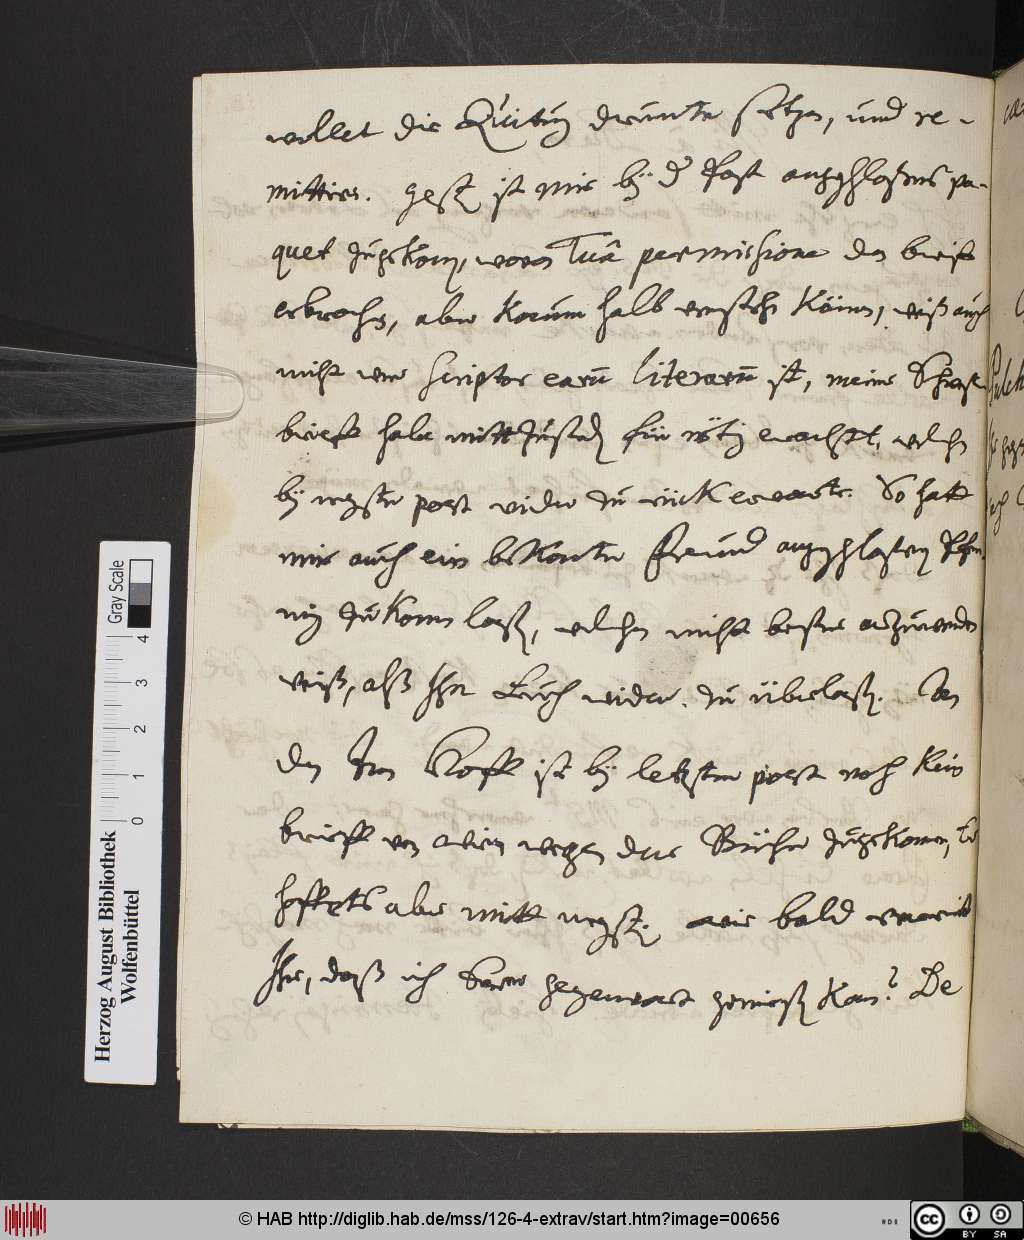 wollet die Quitung drunter setzen, und re-
mittiren. Gestern ist mir bey der Post angeschlossenes pa-
quet zugekommen, woran Tuâ permissione den brieff
erbrochen, aber kaum halb verstehen können, weiß auch
nicht wer scriptor earum literarum ist, meine
brieffe habe mitt zu für nötig erachtet, welchen
bey negster post wider zu rück erwarte. So hatt
mir auch ein bekanter Freund angeschlossenen
zu kommen lassen, welchen nicht besser anzuwenden
weiß, alß Ihn Euch wider zu überlassen. An
den Hoff ist bey letzster post noch kein
brieff von wegen der Bücher zugekommen, Er
hoffets aber mitt negsten. wie bald vermeint
Ihr, daß ich Eurer gegenwart geniessen kan? De
Gray Scale
0 1 2 3 4
Herzog August Bibliothek
Wolfenbüttel
© HAB http://diglib.hab.de/mss/126-4-extrav/start.htm?image=00656
CC BY SA